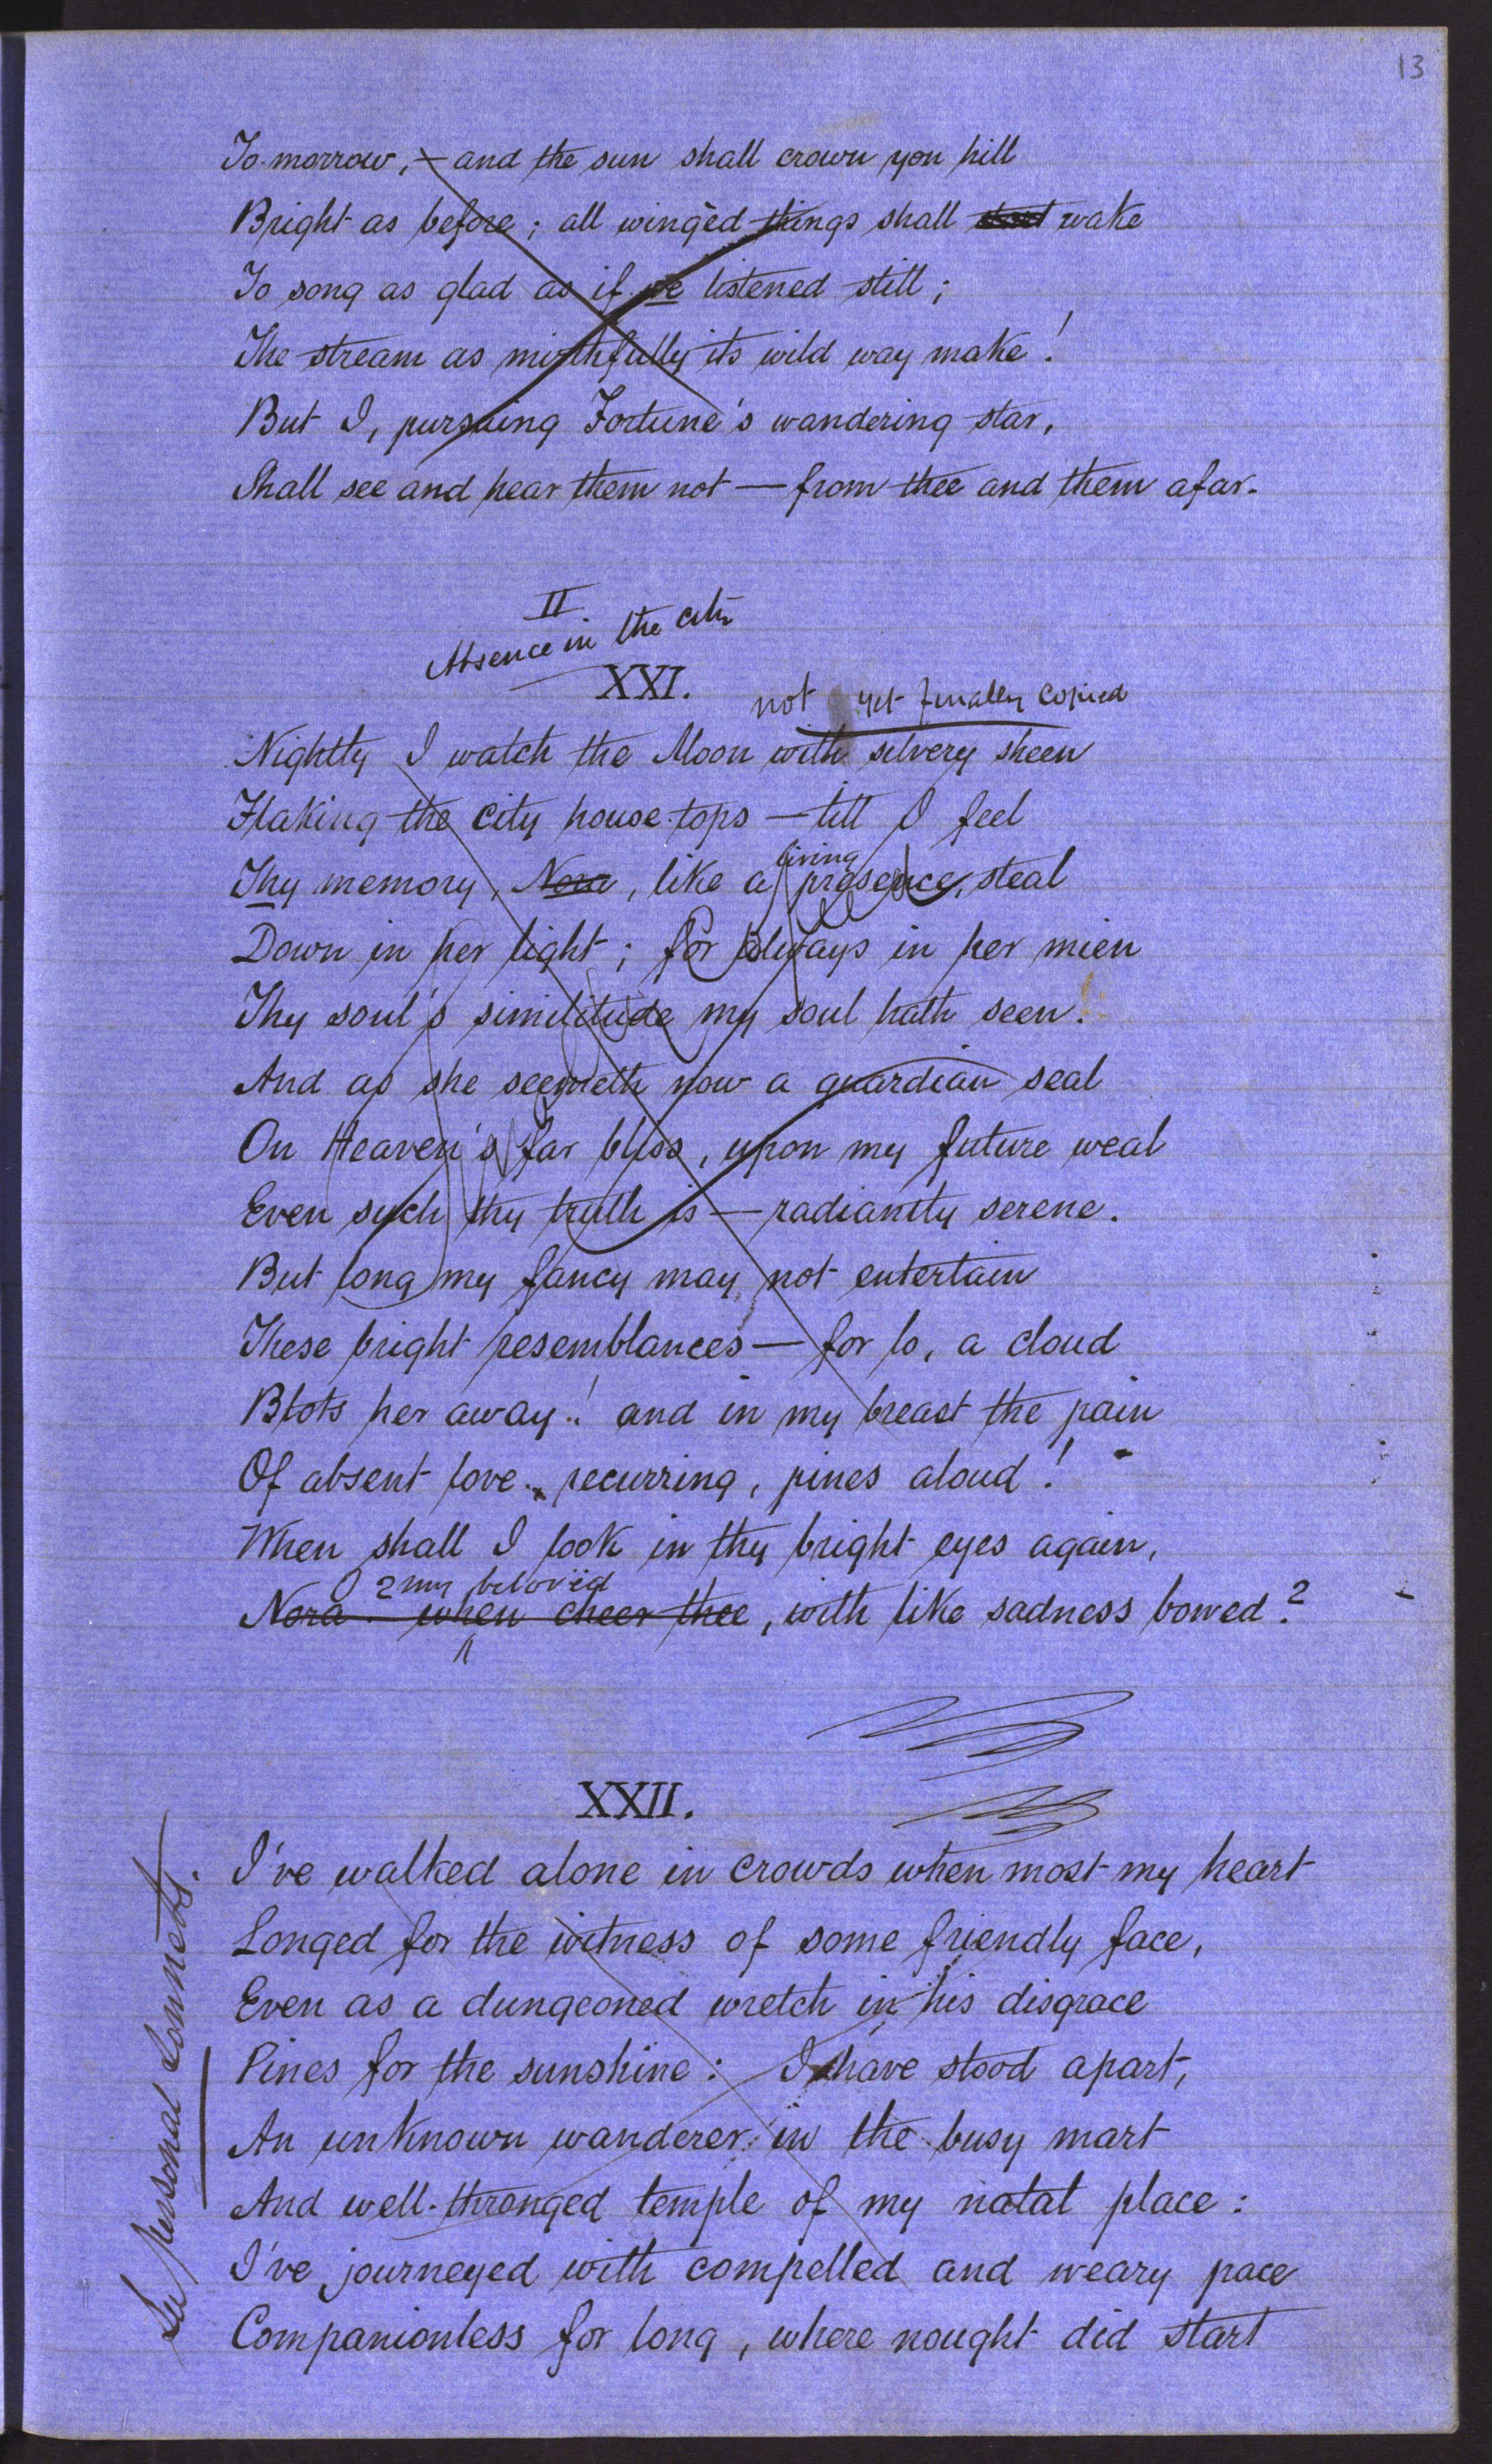 13
To-morrow, — and the sun shall crown yon hill
Bright as before; all wingèd things shall wake
To song as glad as if we listened still;
The stream as mirthfully its wild way make!
But I, pursuing Fortune's wandering star,
Shall see and hear them not — from thee and them afar.
II
Absence in the city
XXI.
not yet finally copied
Nightly I watch the Moon with silvery sheen
Flaking the city house-tops — till I feel
living
Thy memory, Nora, like a presence, steal
Down in her light; for always in her mien
Thy soul's similitude my soul hath seen!
And as she seemeth now a guardian seal
On Heaven's far bliss, upon my future weal
Even such thy truth is — radiantly serene.
But long my fancy may not entertain
These bright resemblances — for lo, a cloud
Blots her away! and in my breast the pain
Of absent love recurring, pines aloud!
When shall I look in thy bright eyes again,
my beloved
Nora? when cheer thee, with like sadness bowed?
XXII.
I've walked alone in crowds when most my heart
Longed for the witness of some friendly face,
Even as a dungeoned wretch in his disgrace
Pines for the sunshine: I have stood apart,
An unknown wanderer in the busy mart
And well-thronged temple of my natal place:
I've journeyed with compelled and weary pace
Companionless for long, where nought did start
See personal Sonnets.